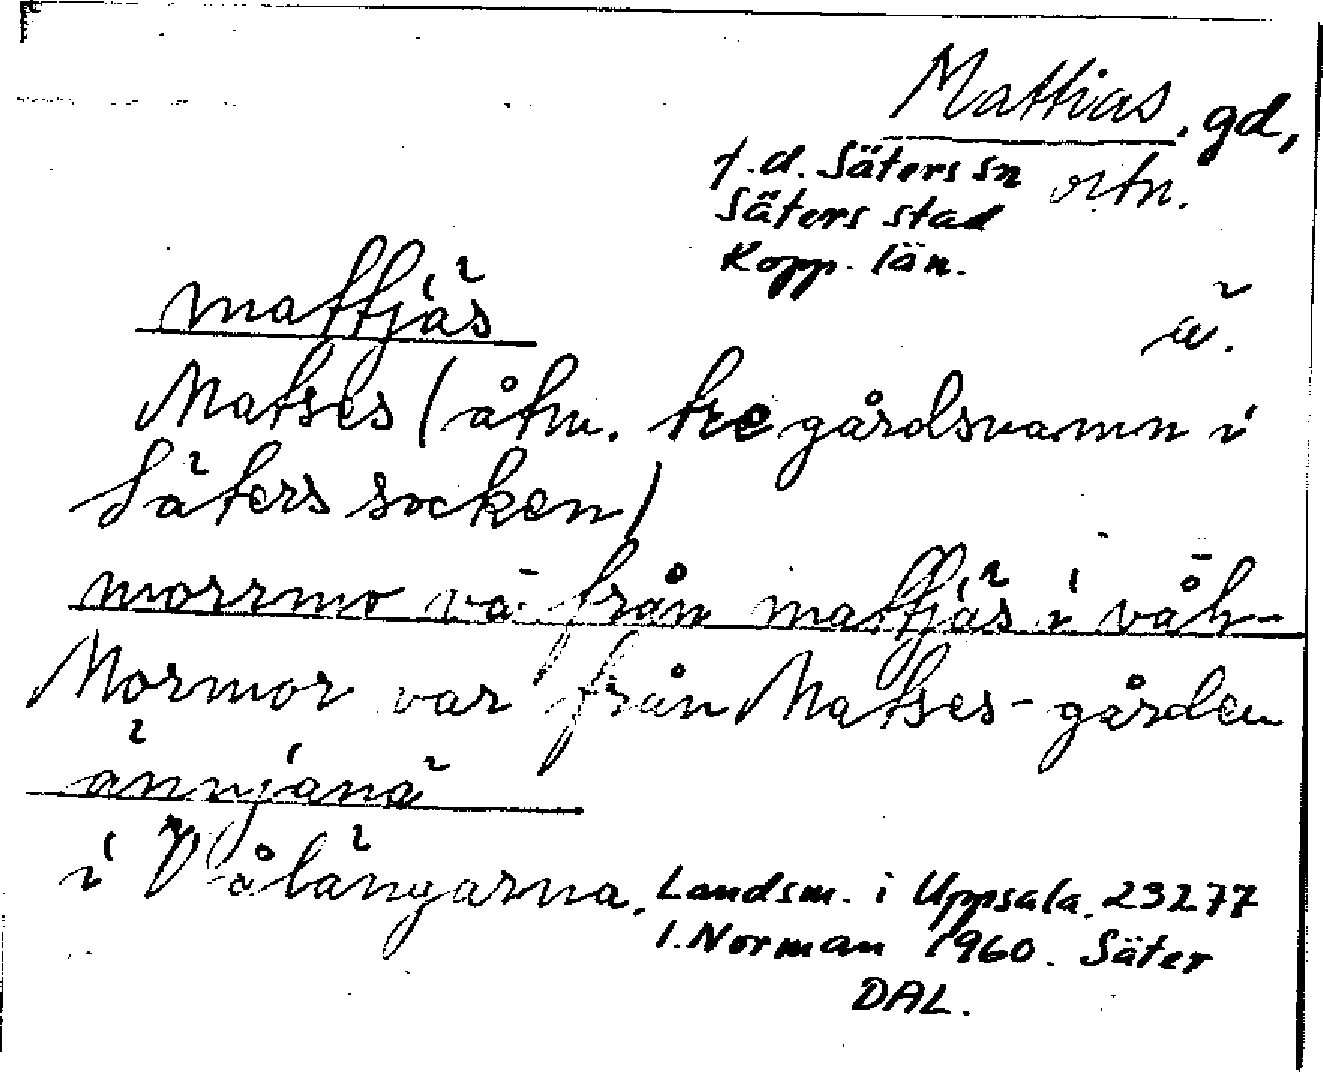 Mattias, gd,
f.d. Säters sn ortn.
Säters stad
Kopp. län.
mattjäs
ä.
Matses (åtm. tre gårdsnamn i
Säters socken)
morrmo vā från mattjäs i vå̄h-
Mormor var från Matses-gården
ännjänä
i Vålängarna.
Landsm. i Uppsala. 23277
I. Norman 1960. Säter
DAL.